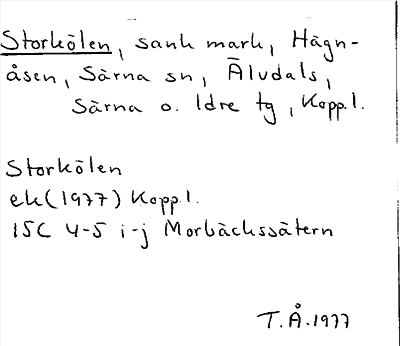 Storkölen, sank mark, Hägn-
åsen, Särna sn, Älvdals,
Särna o. Idre tg, Kopp.l.
Storkölen
ek (1977) Kopp.l.
15C 4-5 i-j Morbäckssätern
T.Å. 1977